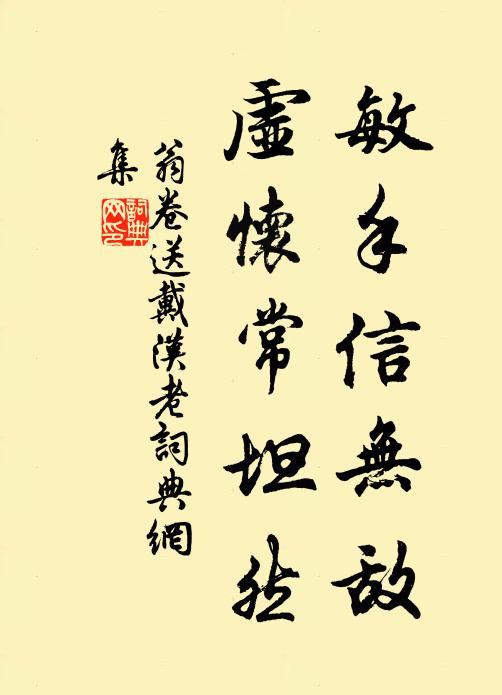 敏手信無敌
虛懷常坦然
翁卷送戴漢老詞典網
集
詞典
网印